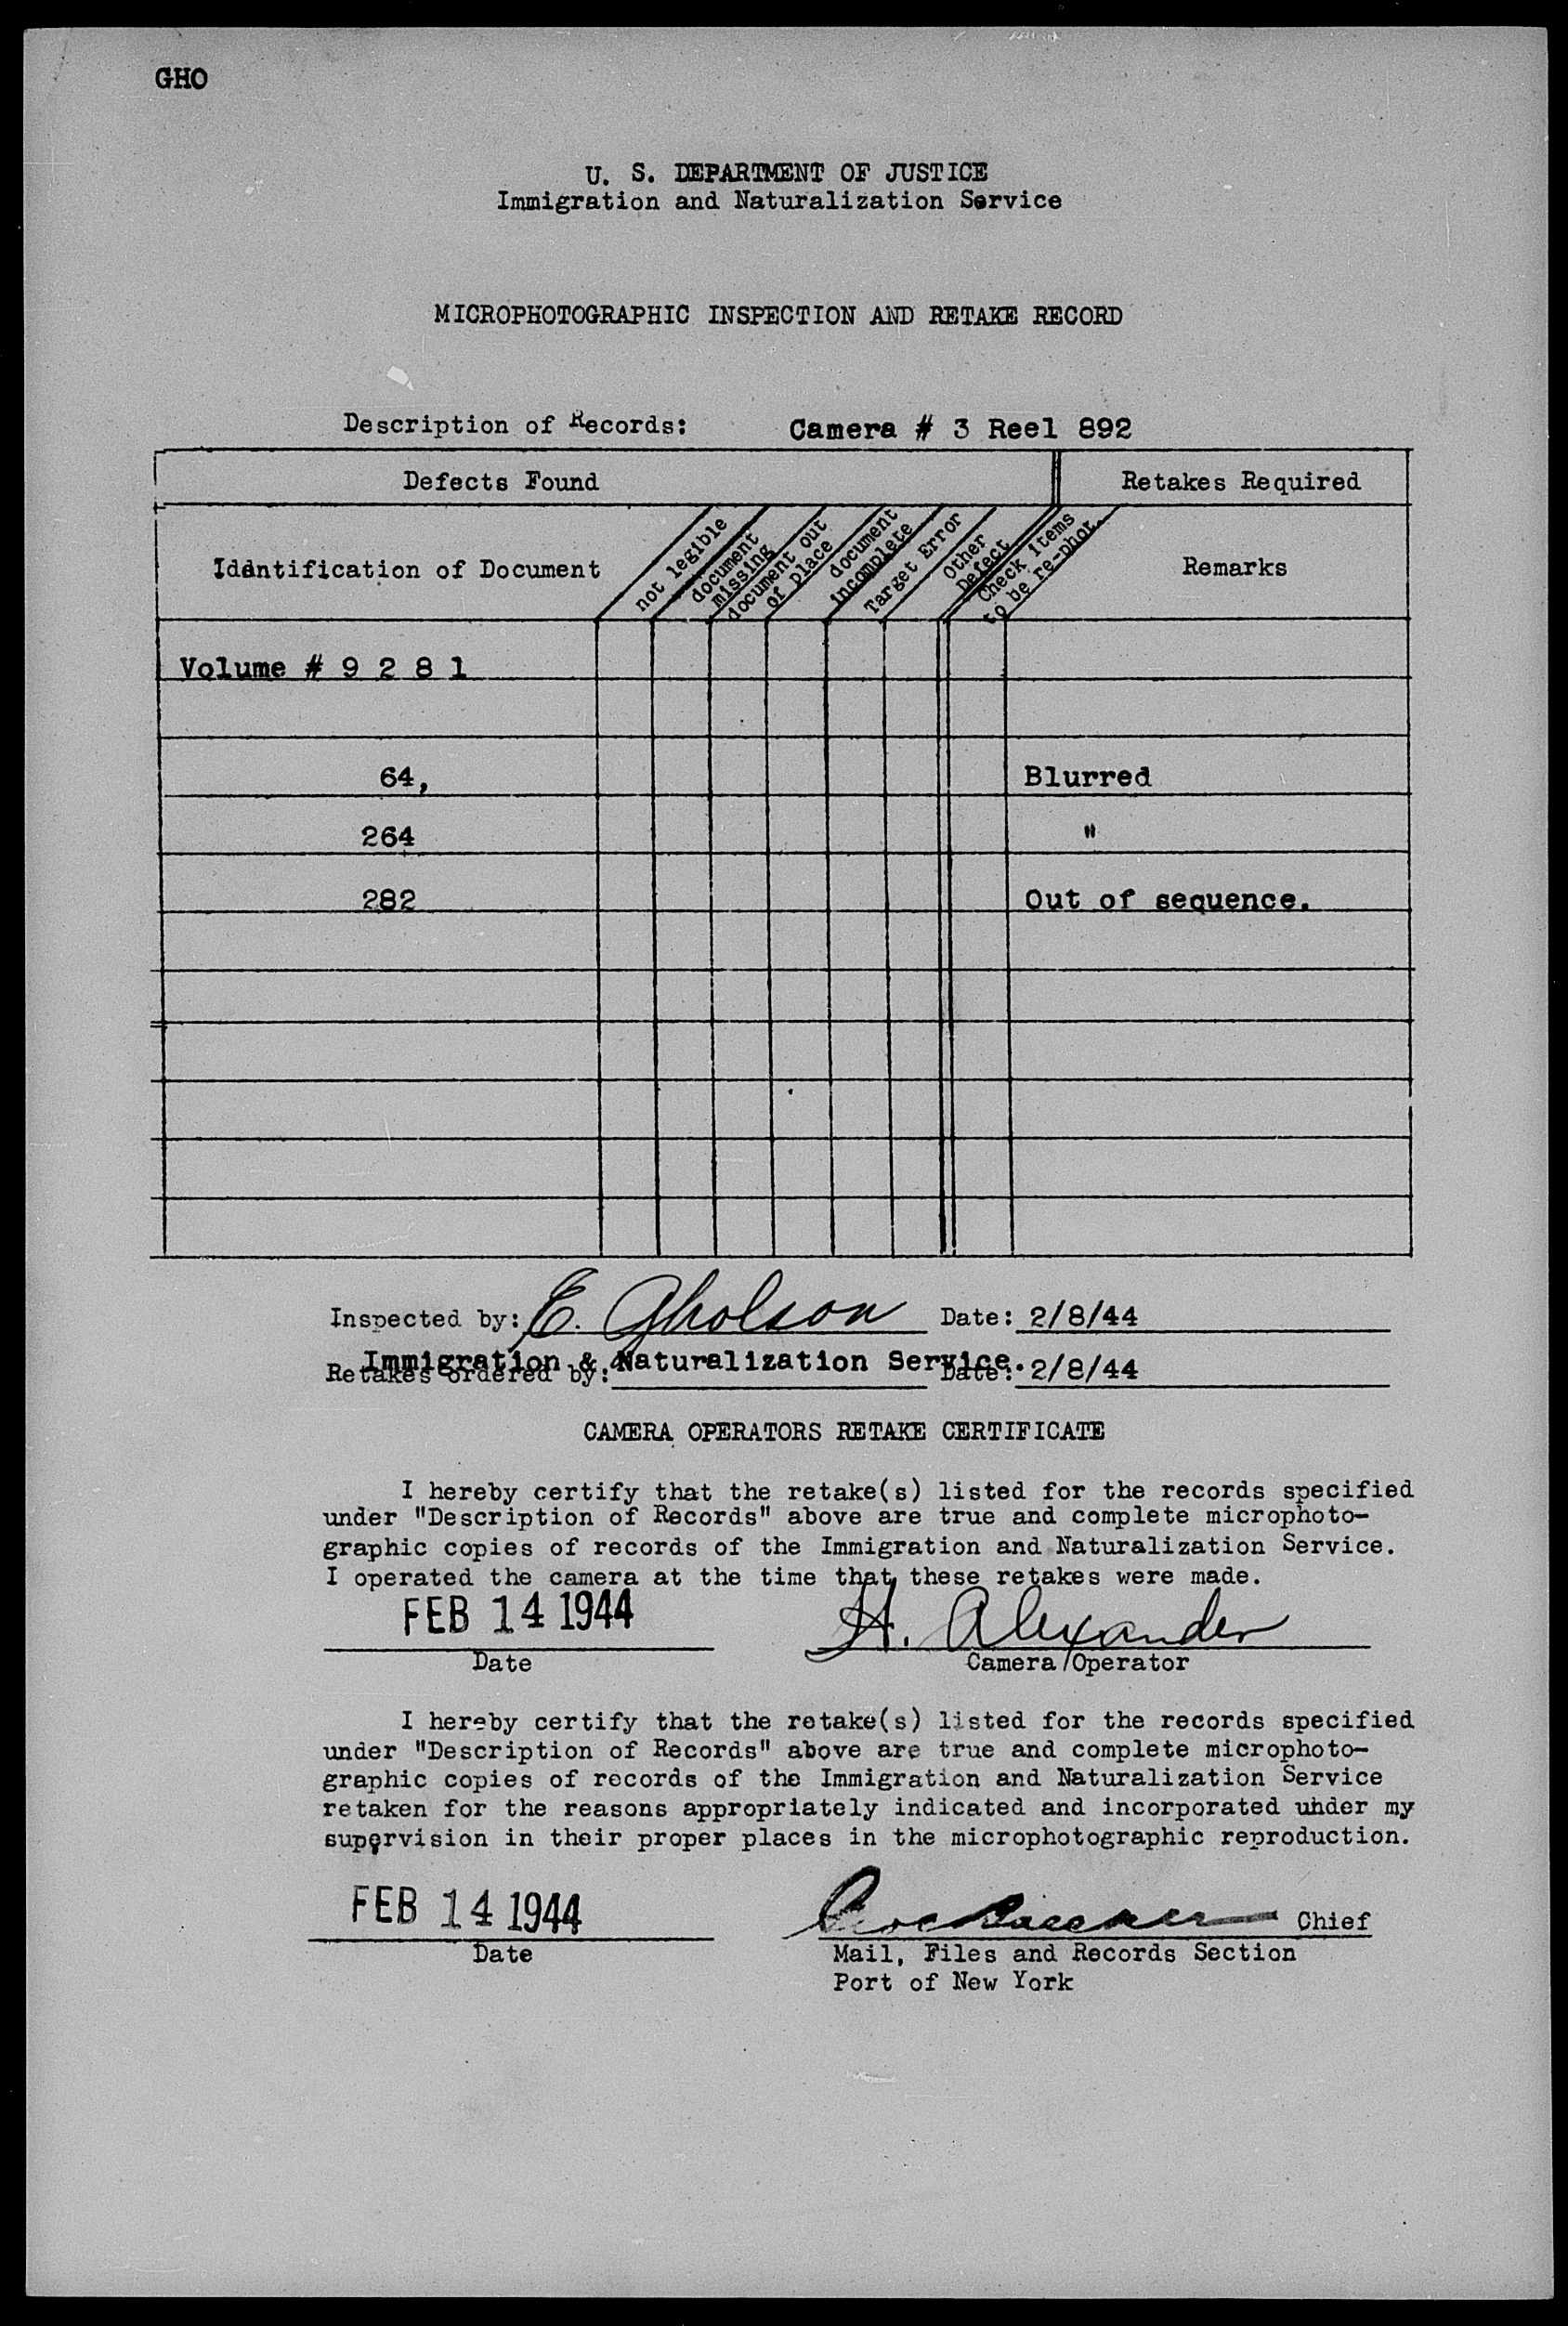 GHO
U. S. DEPARTMENT OF JUSTICE
Immigration and Naturalization Service
MICROPHOTOGRAPHIC INSPECTION AND RETAKE RECORD
Description of Records: Camera # 3 Reel 892
Defects Found Retakes Required
Idantification of Document
not legible
document
missing
document out
of place
document
incomplete
Target Error
Other
Defect
Check items
to be re-phot.
Remarks
Volume # 9 2 8 1
64, Blurred
264 "
282 Out of sequence.
Inspected by: E. Gholson Date: 2/8/44
Immigration & Naturalization Service.
Retakes ordered by: Date: 2/8/44
CAMERA OPERATORS RETAKE CERTIFICATE
I hereby certify that the retake(s) listed for the records specified
under "Description of Records" above are true and complete microphoto-
graphic copies of records of the Immigration and Naturalization Service.
I operated the camera at the time that these retakes were made.
FEB 14 1944 H. Alexander
Date Camera Operator
I hereby certify that the retake(s) listed for the records specified
under "Description of Records" above are true and complete microphoto-
graphic copies of records of the Immigration and Naturalization Service
retaken for the reasons appropriately indicated and incorporated under my
supervision in their proper places in the microphotographic reproduction.
FEB 14 1944 Chief
Date Mail, Files and Records Section
Port of New York